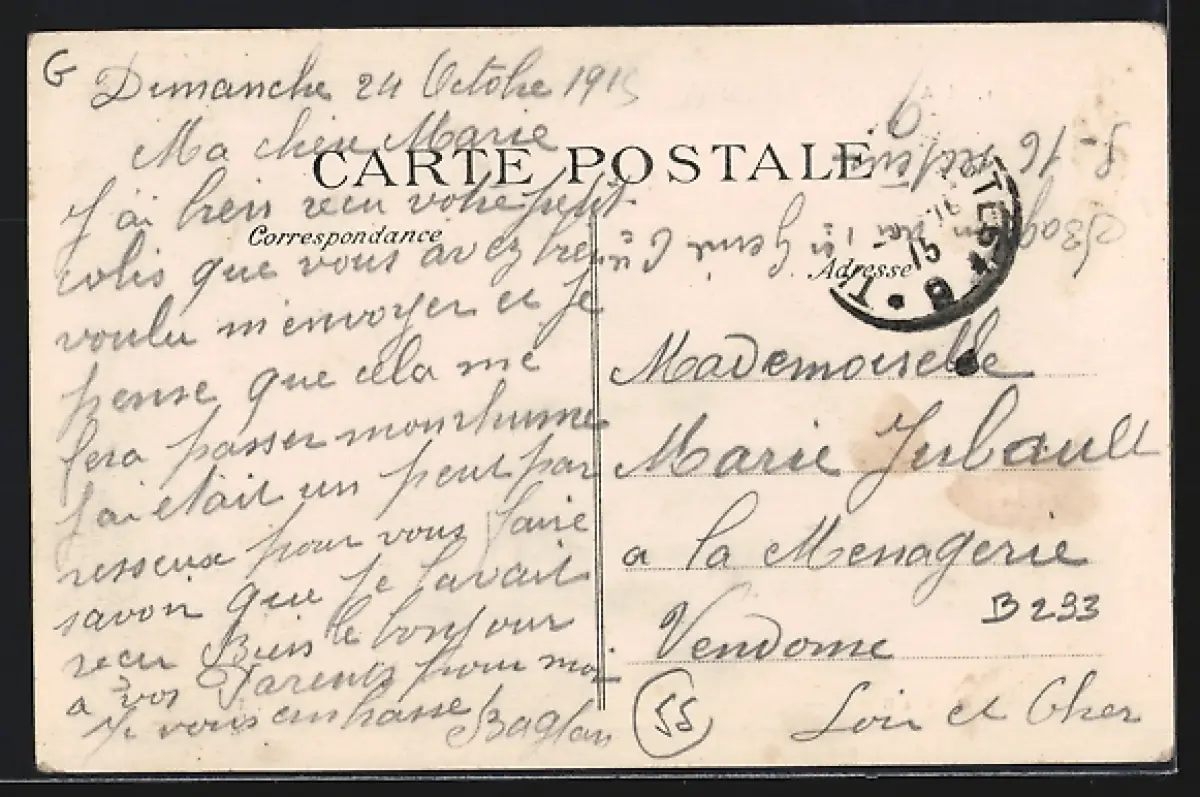 G
Dimanche 24 Octobre 1915
Ma chere Marie
CARTE POSTALE
J'ai bien recu votre petit
Correspondance
colis que vous avez bien
voulu m'envoyer et je
pense que cela me
fera passer mon rhume
J'ai était un peut par
resseux pour vous faire
savoir que je lavait
recu Bien le bonjour
a vos Parents pour moi
Je vous embrasse Baglan
16
Adresse
15
Mademoiselle
Marie Jubault
a la Menagerie
Vendome
B 233
Loir et Cher
55